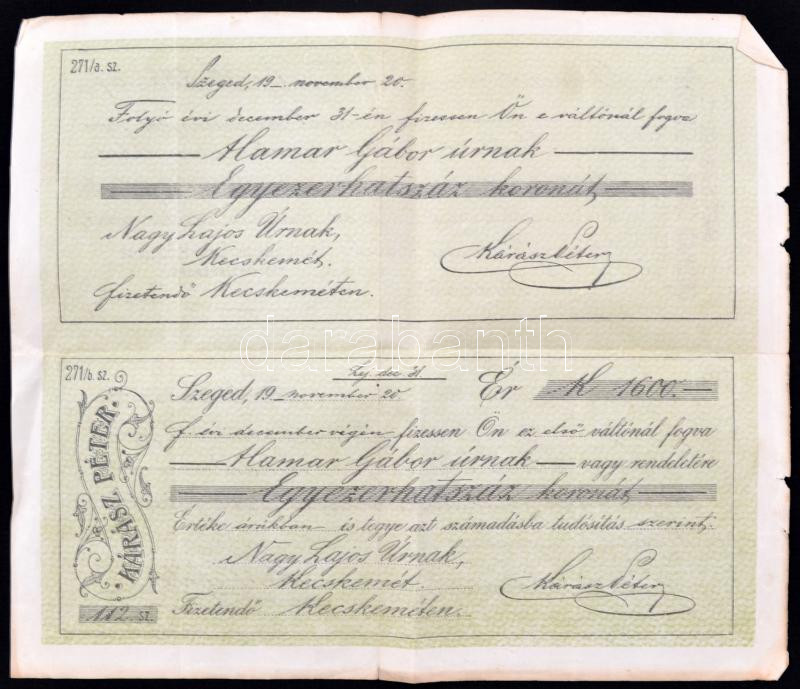 271/a. sz.
Szeged, 19_ november 20.
Folyó évi december 31-én fizessen Ön e váltónál fogva
Hamar Gábor úrnak
Egyezerhatszáz koronát
Nagy Lajos Úrnak,
Kecskemét.
Kárász Péter
fizetendő Kecskeméten.
darabanth
271/b. sz.
Lej. dec. 31
Szeged, 19_ november 20. Ér K 1600.
f. évi december végén fizessen Ön ez első váltónál fogva
Hamar Gábor úrnak vagy rendeletére
Egyezerhatszáz koronát
Értéke árúkban és tegye azt számadásba tudósítás szerint.
Nagy Lajos Úrnak,
Kecskemét.
Kárász Péter
KÁRÁSZ PÉTER.
112 sz. Fizetendő Kecskeméten.